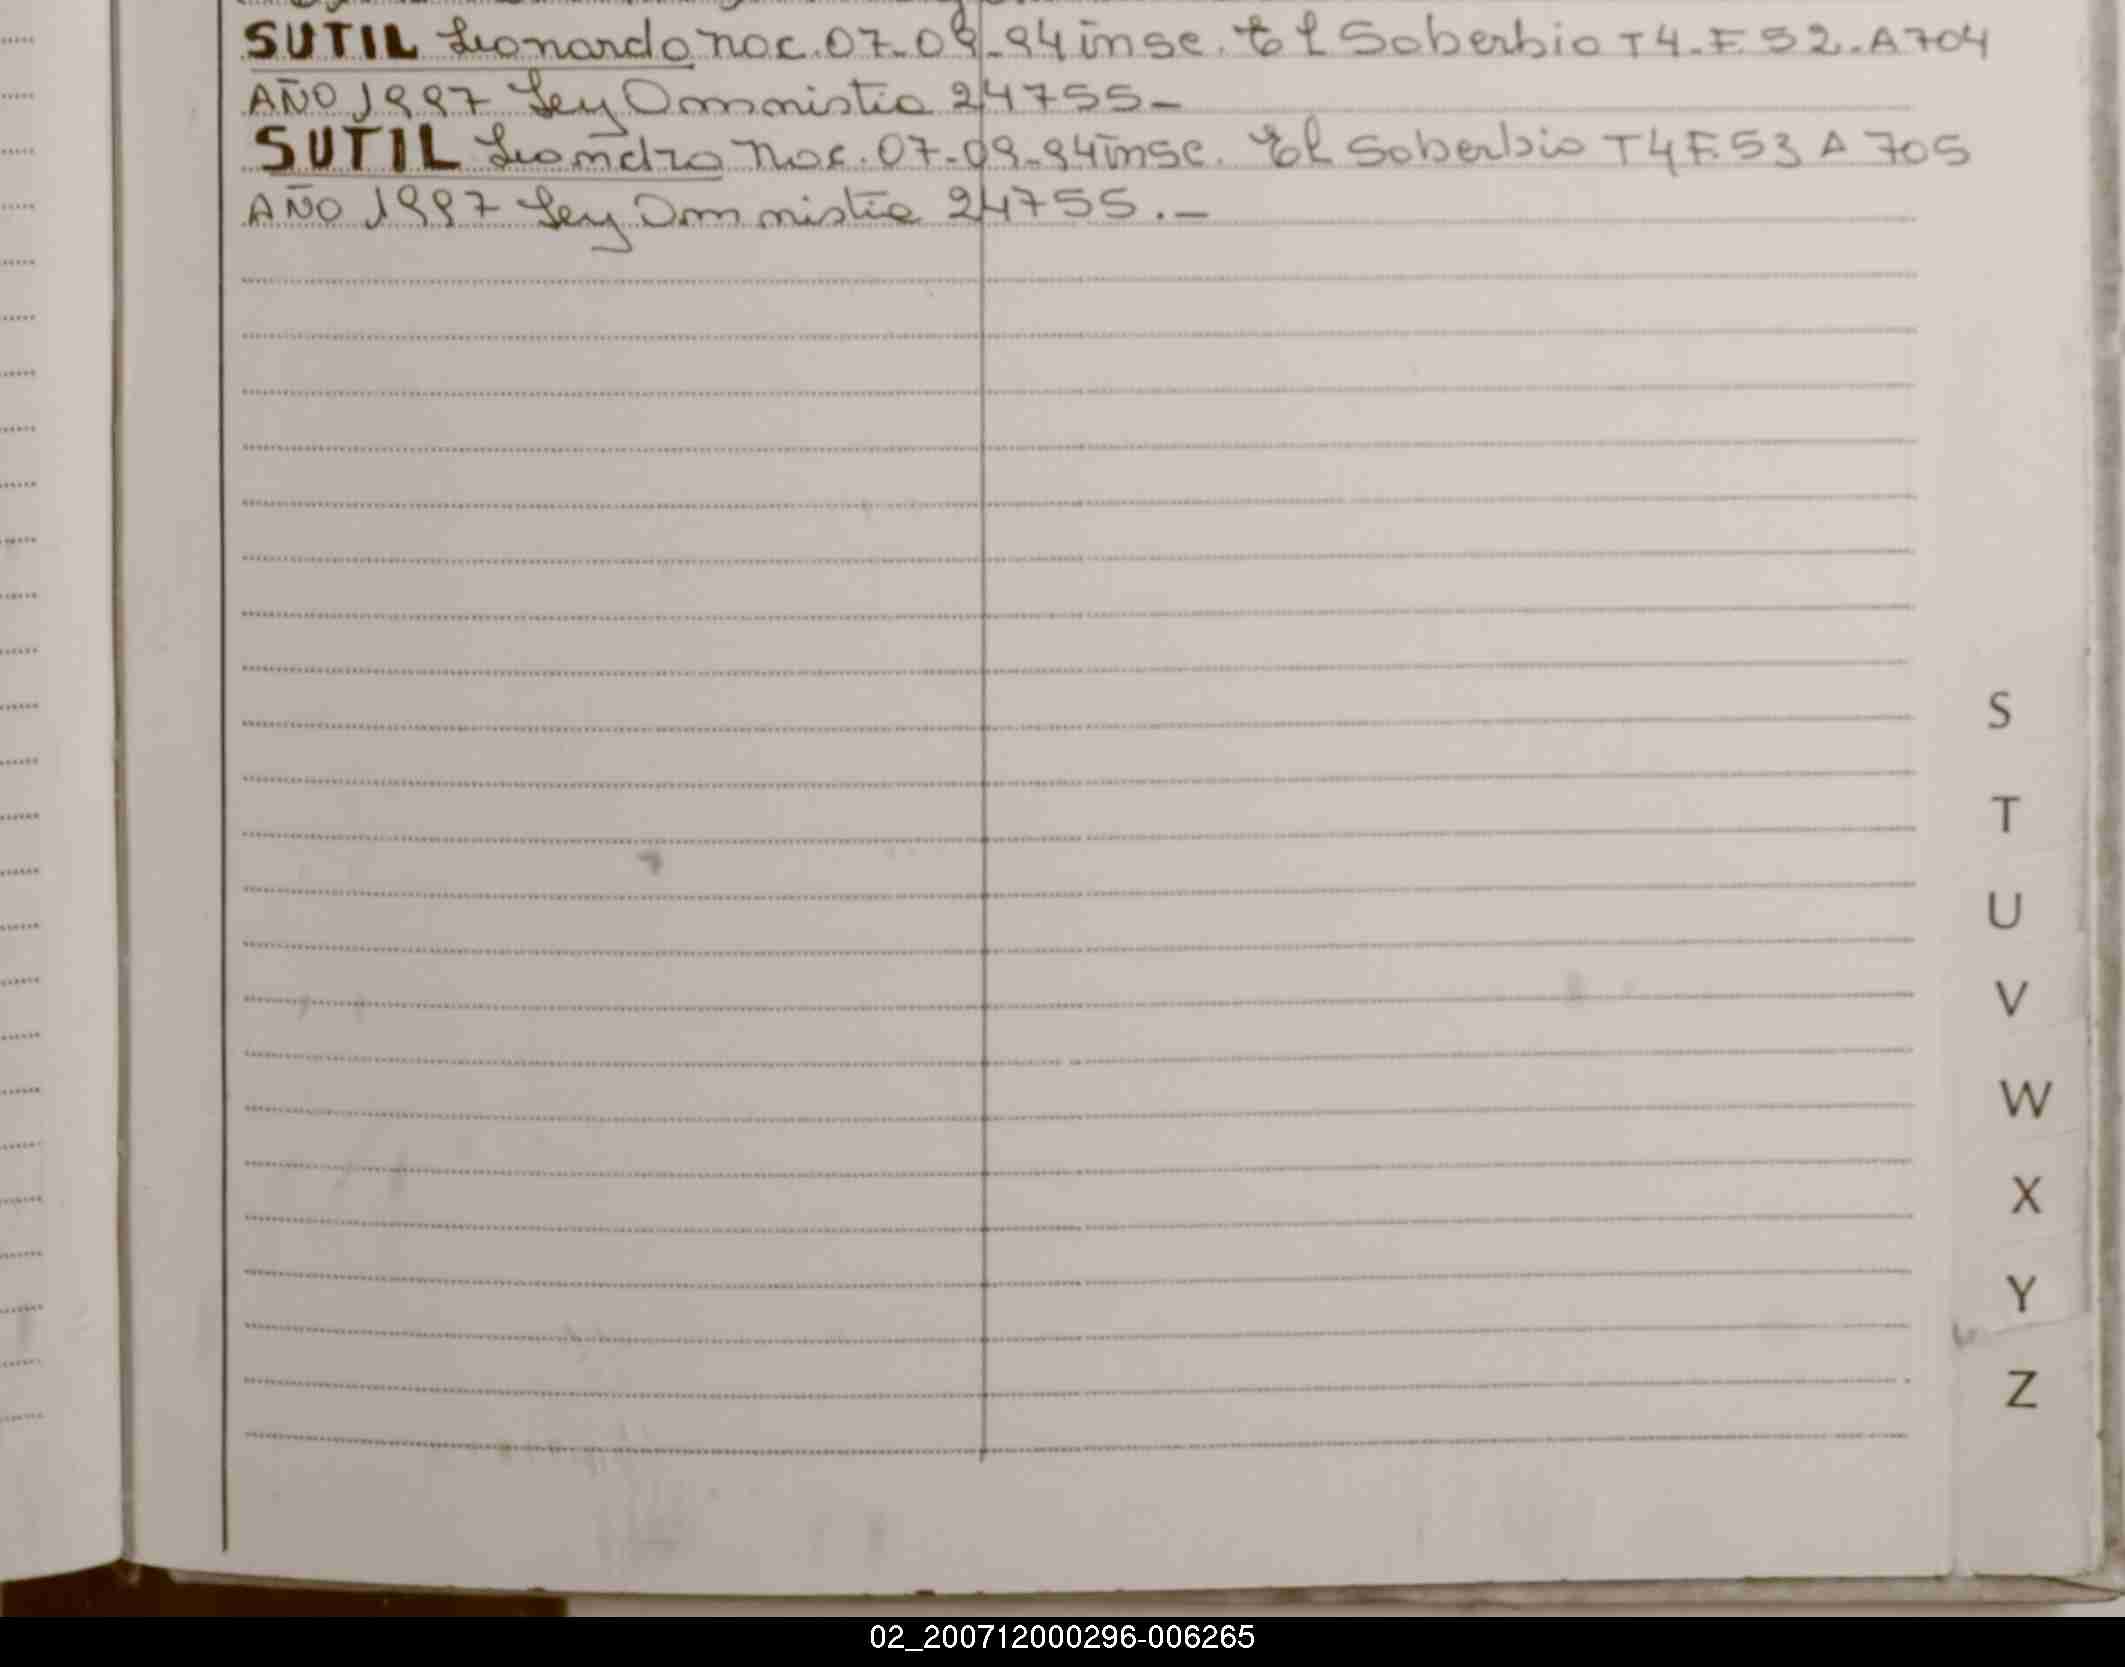 SUTIL Leonardo nac. 07-09-94 insc. El Soberbio T4-F.52-A704
AÑO 1997 Ley Ammnistia 24755-
SUTIL Leandro nac. 07-09-94 insc. El Soberbio T4 F.53 A 705
AÑO 1997 Ley Ammnistia 24755.-
S
T
U
V
W
X
Y
Z
02_200712000296-006265